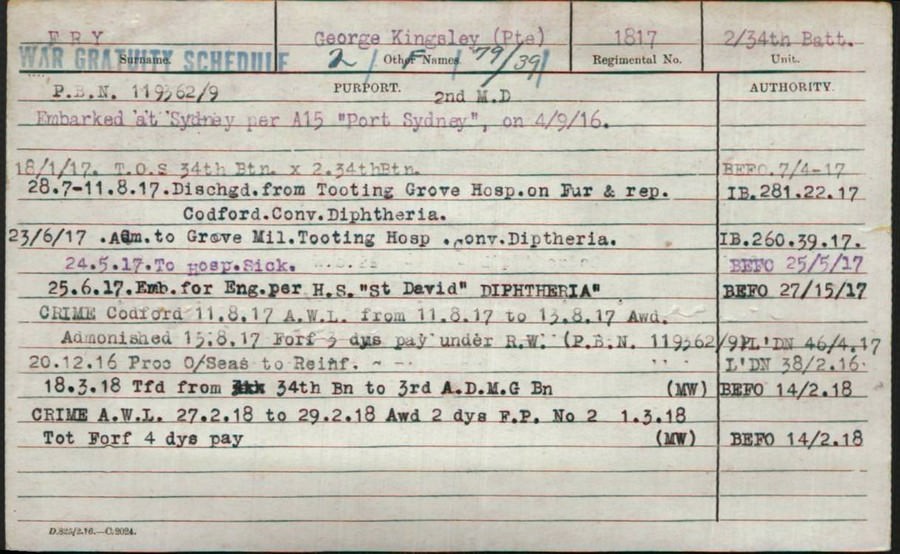 FRY George Kingsley (Pte) 1817 2/34th Batt.
WAR GRATUITY SCHEDULE 2/ 79/39/
Surname. Other Names. Regimental No. Unit.
P.B.N. 119362/9 PURPORT. 2nd M.D AUTHORITY.
Embarked at Sydney per A15 "Port Sydney", on 4/9/16.
18/1/17. T.O.S 34th Btn. x 2.34thBtn. BEFO.7/4-17
28.7-11.8.17.Dischgd.from Tooting Grove Hosp.on Fur & rep. IB.281.22.17
Codford.Conv.Diphtheria.
23/6/17 .Adm.to Grove Mil.Tooting Hosp .conv.Diptheria. IB.260.39.17.
24.5.17.To Hosp.Sick. BEFO 25/5/17
25.6.17.Emb.for Eng.per H.S."St David" DIPHTHERIA" BEFO 27/15/17
CRIME Codford 11.8.17 A.W.L. from 11.8.17 to 13.8.17 Awd.
Admonished 15.8.17 Forf 3 dys pay under R.W. (P.B.N. 119362/9) L'DN 46/4.17
20.12.16 Proc O/Seas to Reinf. L'DN 38/2.16.
18.3.18 Tfd from 34th Bn to 3rd A.D.M.G Bn (MW) BEFO 14/2.18
CRIME A.W.L. 27.2.18 to 29.2.18 Awd 2 dys F.P. No 2 1.3.18
Tot Forf 4 dys pay (MW) BEFO 14/2.18
D.825/2.16.—C.2024.